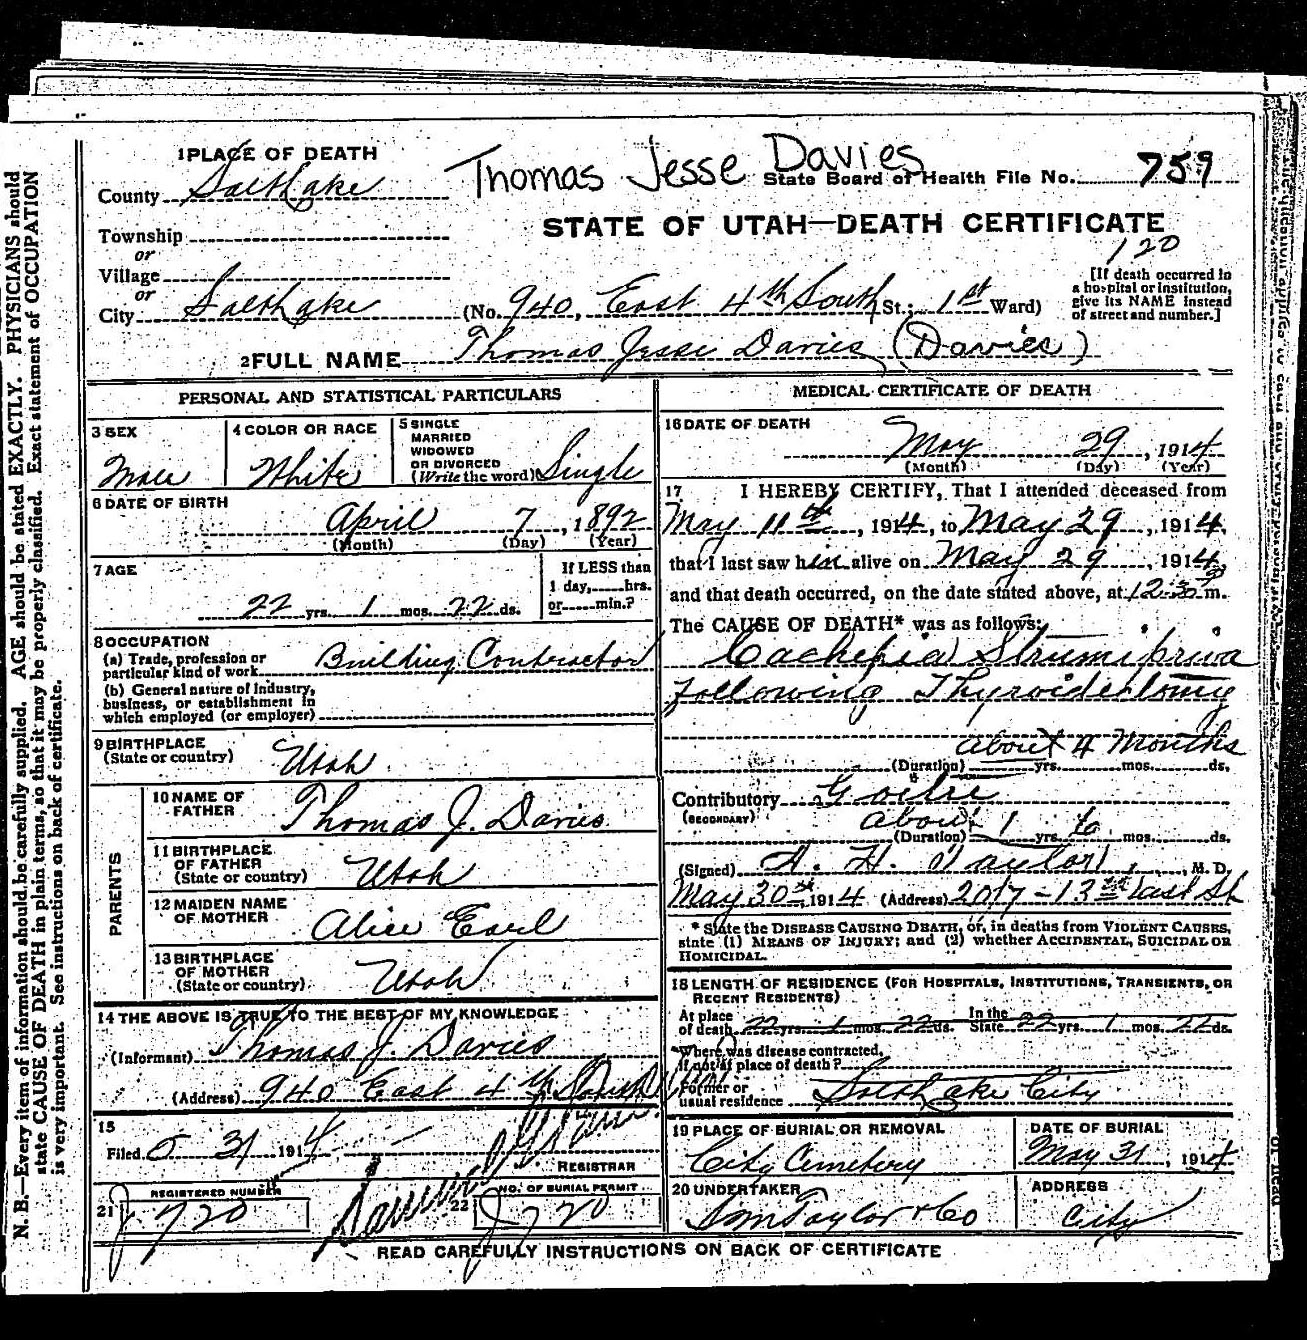 1 PLACE OF DEATH
County Salt Lake
Thomas Jesse Davies
State Board of Health File No. 759
Township
or
Village
or
City Salt Lake
STATE OF UTAH—DEATH CERTIFICATE
120
(No. 940, East 4th South St.; 1st Ward)
[If death occurred in
a hospital or institution,
give its NAME instead
of street and number.]
2 FULL NAME Thomas Jesse Davies (Davies)
PERSONAL AND STATISTICAL PARTICULARS
3 SEX
Male
4 COLOR OR RACE
White
5 SINGLE
MARRIED
WIDOWED
OR DIVORCED
(Write the word) Single
6 DATE OF BIRTH
April 7, 1892
(Month) (Day) (Year)
7 AGE
22 yrs. 1 mos. 22 ds.
If LESS than
1 day, hrs.
or min.?
8 OCCUPATION
(a) Trade, profession or
particular kind of work Building Contractor
(b) General nature of industry,
business, or establishment in
which employed (or employer)
9 BIRTHPLACE
(State or country) Utah
PARENTS
10 NAME OF
FATHER Thomas J. Davies
11 BIRTHPLACE
OF FATHER
(State or country) Utah
12 MAIDEN NAME
OF MOTHER Alice Earl
13 BIRTHPLACE
OF MOTHER
(State or country) Utah
14 THE ABOVE IS TRUE TO THE BEST OF MY KNOWLEDGE
(Informant) Thomas J. Davies
(Address) 940 East 4th South
15
Filed 5 31 1914
REGISTRAR
REGISTERED NUMBER
21 J 720
NO. OF BURIAL PERMIT
22 J 720
MEDICAL CERTIFICATE OF DEATH
16 DATE OF DEATH
May 29, 1914
(Month) (Day) (Year)
17 I HEREBY CERTIFY, That I attended deceased from
May 11th, 1914, to May 29, 1914,
that I last saw him alive on May 29, 1914,
and that death occurred, on the date stated above, at 12:30 P m.
The CAUSE OF DEATH* was as follows:
Cachexia Strumipriva
following Thyroidectomy
about 4 Months
(Duration) yrs. mos. ds.
Contributory Goitre
(SECONDARY)
about 1 6
(Duration) yrs. mos. ds.
(Signed) A. H. Taylor, M. D.
May 30th, 1914 (Address) 2017-13th East St
* State the DISEASE CAUSING DEATH, or, in deaths from VIOLENT CAUSES,
state (1) MEANS OF INJURY; and (2) whether ACCIDENTAL, SUICIDAL OR
HOMICIDAL.
18 LENGTH OF RESIDENCE (FOR HOSPITALS, INSTITUTIONS, TRANSIENTS, OR
RECENT RESIDENTS)
At place
of death 22 yrs. 1 mos. 22 ds. In the
State 22 yrs. 1 mos. 22 ds.
Where was disease contracted,
if not at place of death?
Former or
usual residence Salt Lake City
19 PLACE OF BURIAL OR REMOVAL
City Cemetery
DATE OF BURIAL
May 31, 1914
20 UNDERTAKER
S M Taylor & Co
ADDRESS
City
READ CAREFULLY INSTRUCTIONS ON BACK OF CERTIFICATE
N. B.—Every item of information should be carefully supplied. AGE should be stated EXACTLY. PHYSICIANS should
state CAUSE OF DEATH in plain terms, so that it may be properly classified. Exact statement of OCCUPATION
is very important. See instructions on back of certificate.